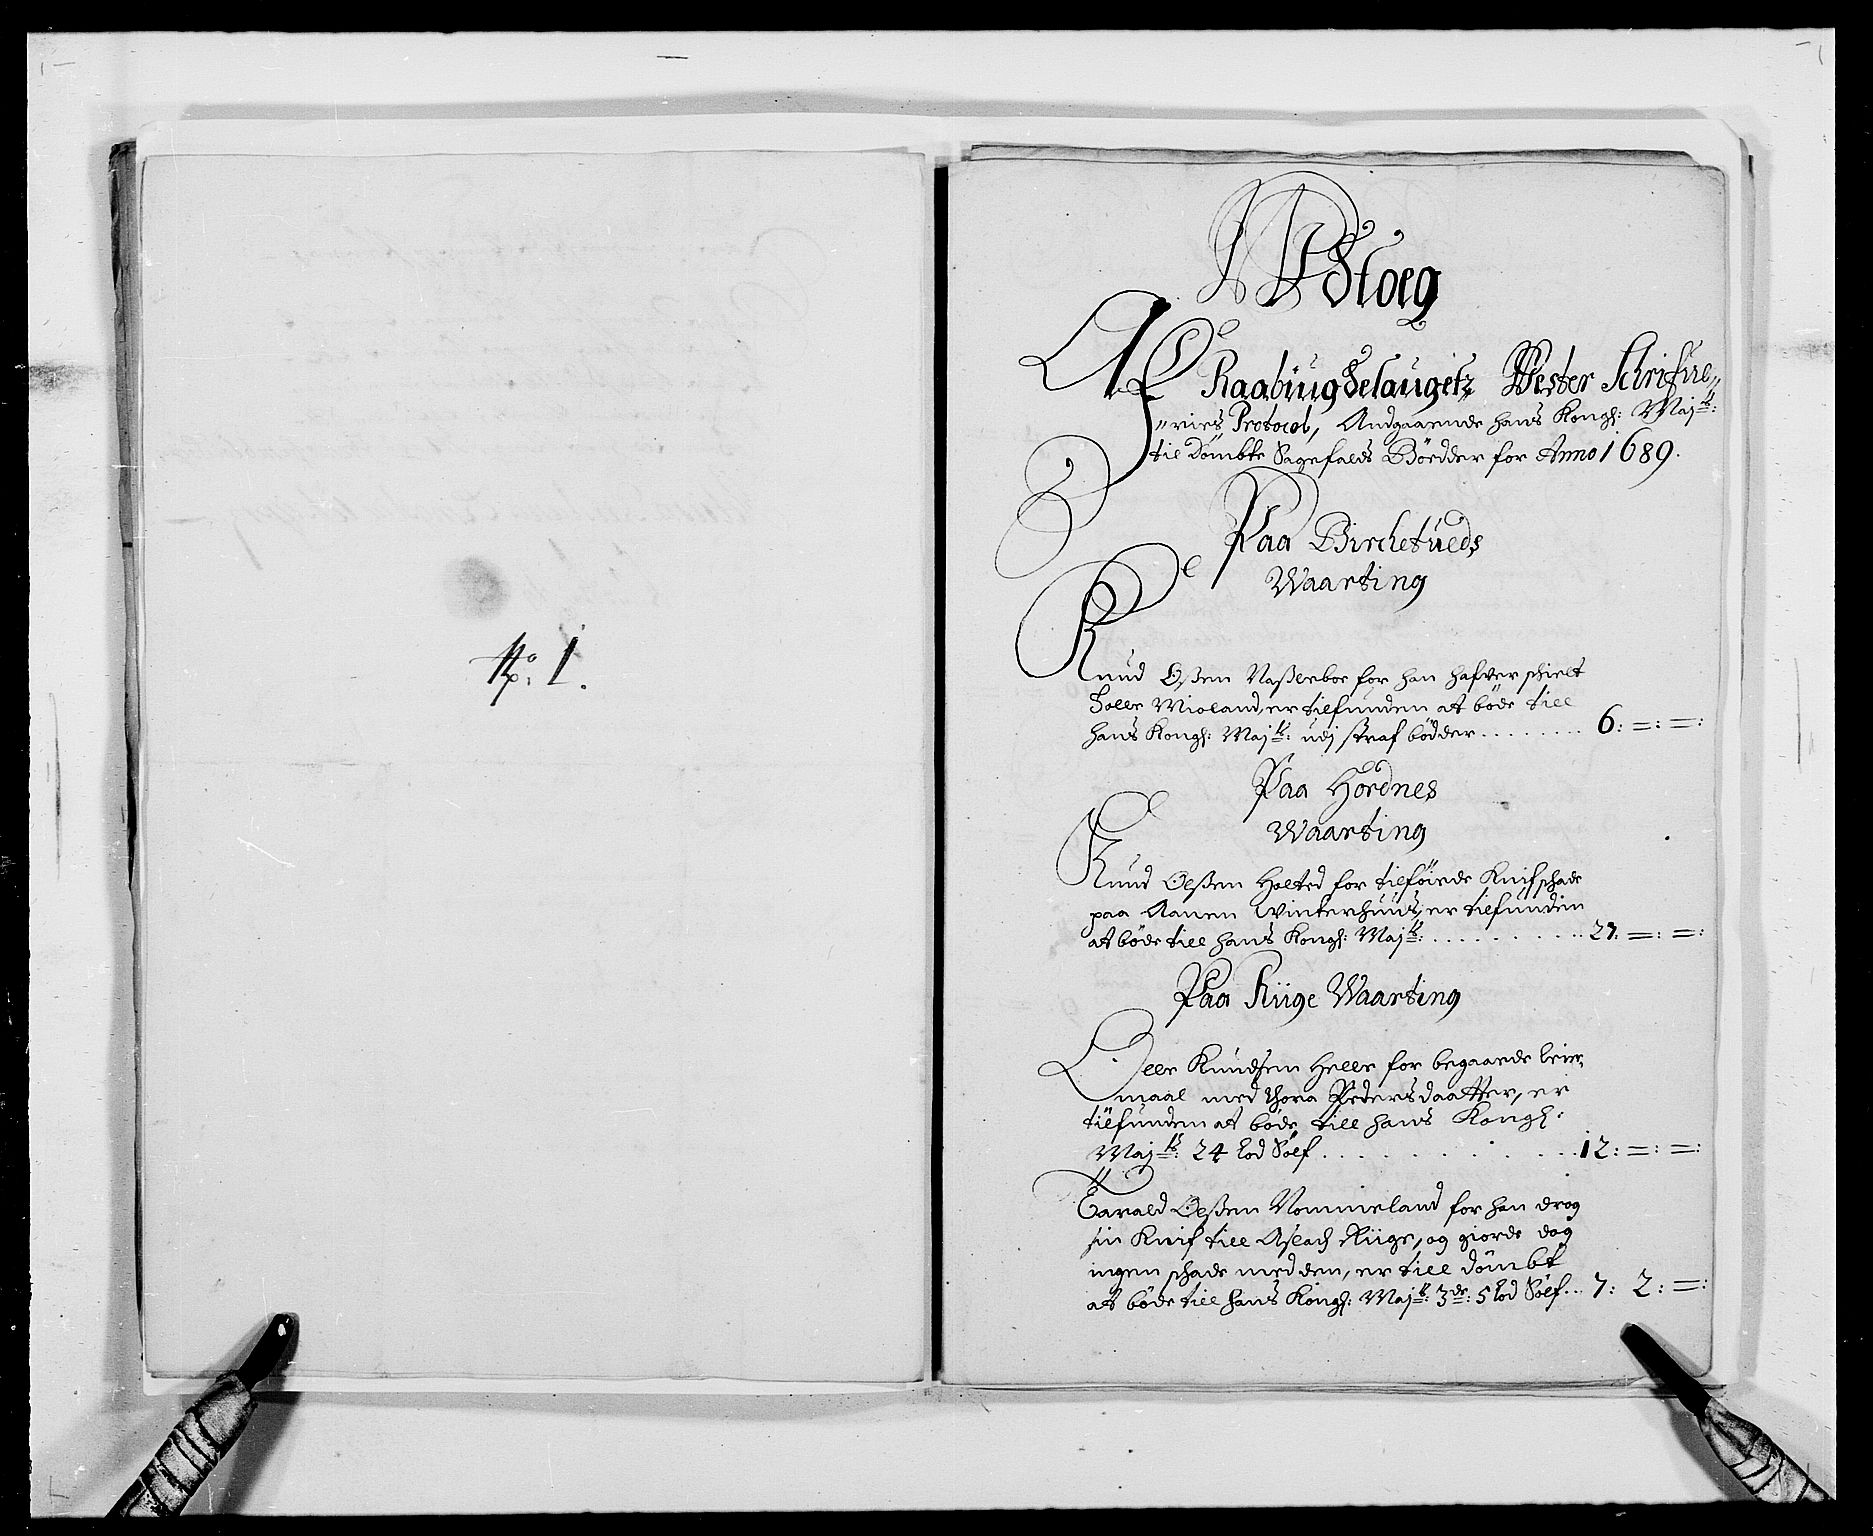 No. 1.
Udtoeg
Af Raabÿugdelaugetz Wester Schrifue„
„ries Protocol, Andgaaende hans Kongl: Maj.ts:
til dömbte Sagefalds Böedder for Anno 1689.
Paa Birchetueds
Waarting
Knud Oßen Naßleboe for han hafver schielt
Solle Mioland, er tilfunden at böde till
hans Kongl: Maj.ts: udj straf bödder ........ 6: =: =:
Paa Hördnes
Waarting
Knud Olßen Holted for tilföiede Knifschade
paa Aanen Winterhuus, er tilfunden
at böde till hans Kongl: Maj.ts: .......... 27: =: =:
Paa Riige Waarting
Olle Knudsen Helle for begaaede leier„
maal med Thora Pedersdaatter, er
tilfunden at böde till hans Kongl:
Maj.ts: 24 lod Sölf . . . . . . . . 12: =: =:
Tarald Olßen Nommeland for han drog
sin Knif till Aslach Riige, og giorde dog
ingen schade med den, er till dömbt
at böde till hans Kongl: Maj.ts: 3de: 5 lod Sölf .. 7: 2: =: